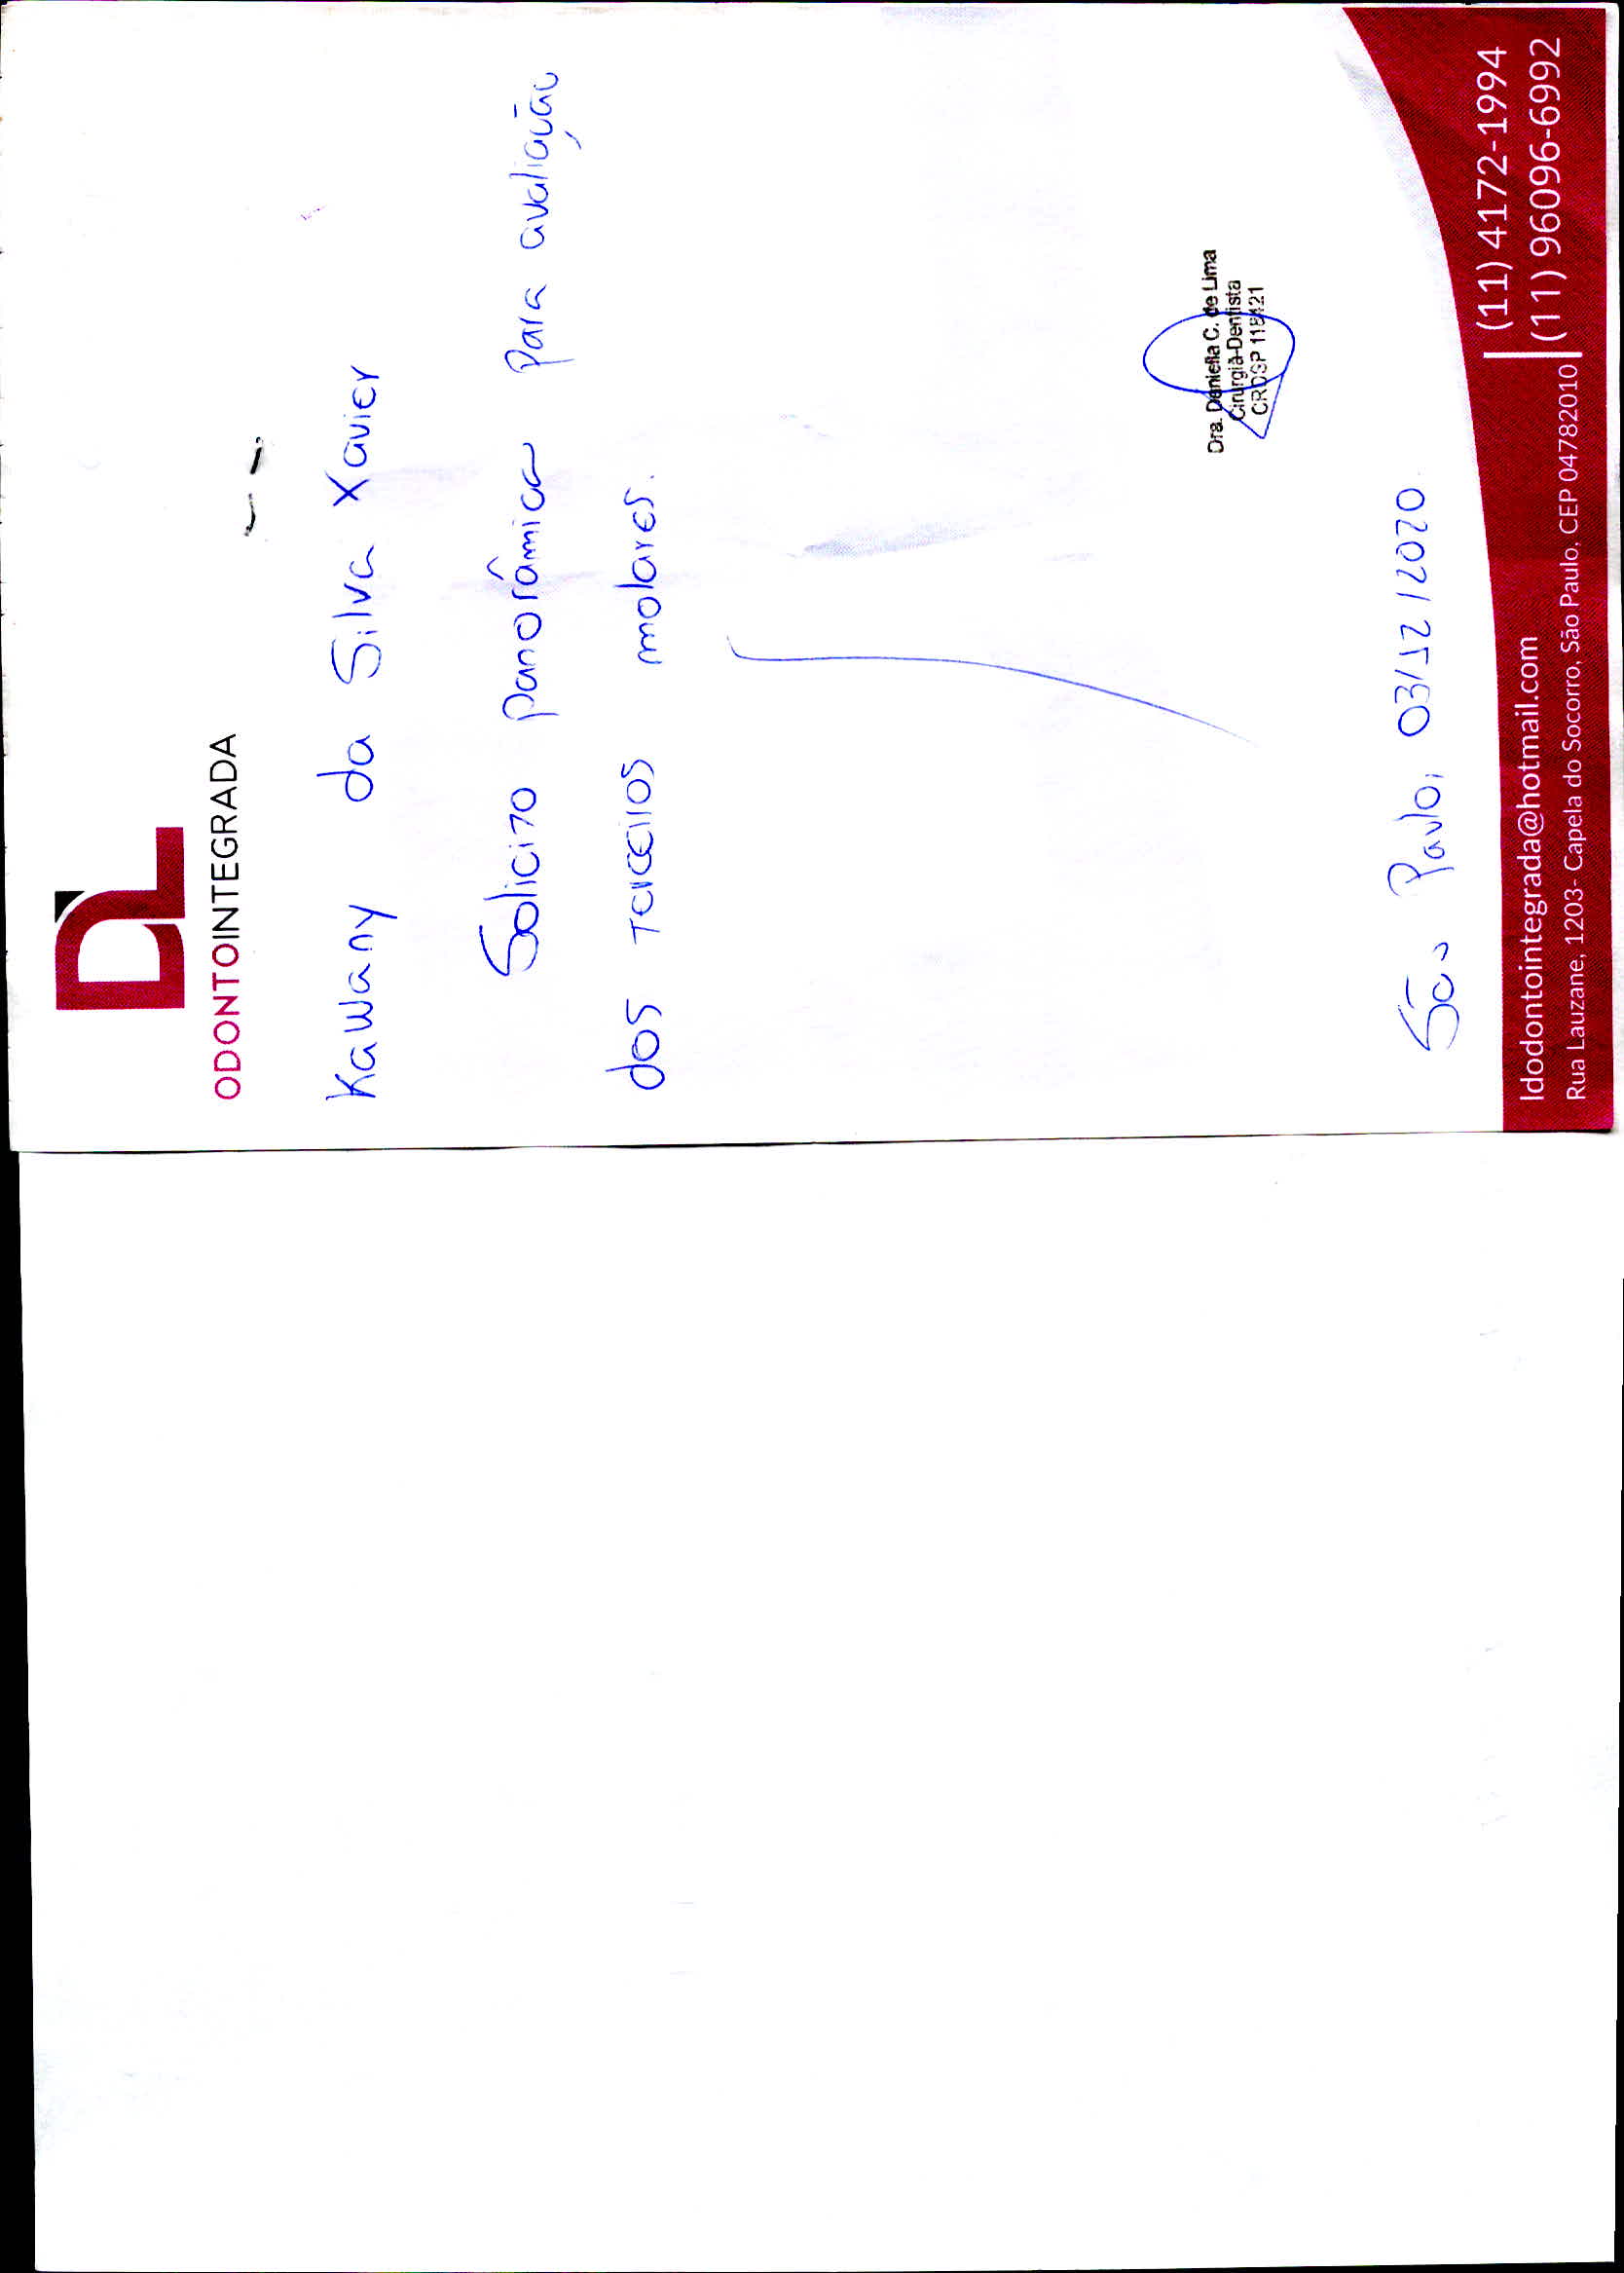 DL
ODONTOINTEGRADA
Kawany da Silva Xavier
Solicito panorâmica para avaliação
dos terceiros molares.
Dra. Daniella C. de Lima
Cirurgiã-Dentista
CROSP 118421
São Paulo, 03/12/2020
ldodontointegrada@hotmail.com
(11) 4172-1994
Rua Lauzane, 1203- Capela do Socorro, São Paulo, CEP 04782010
(11) 96096-6992